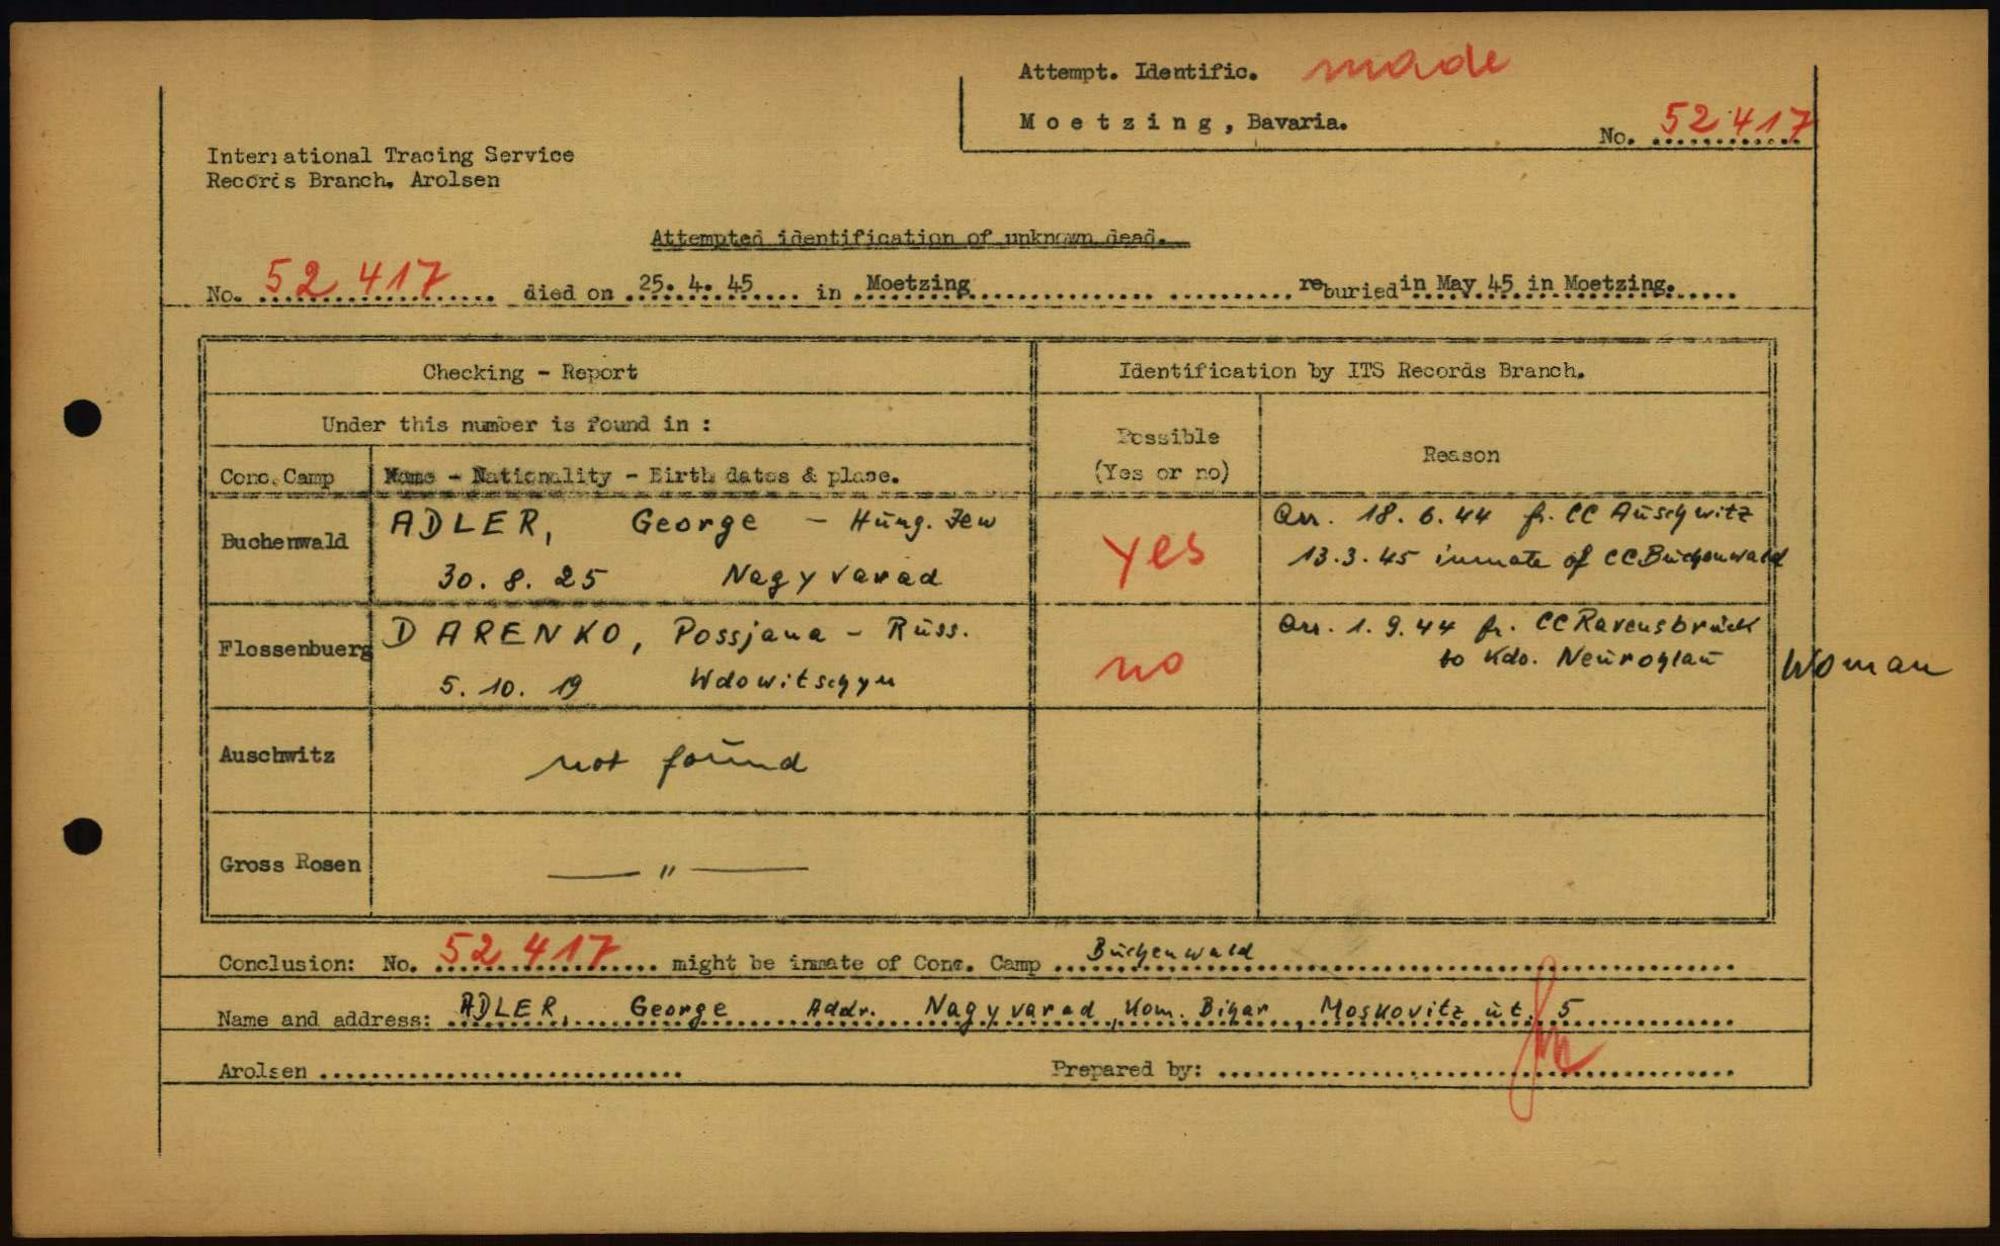 Attempt. Identific. made
Moetzing, Bavaria.
No. 52417
International Tracing Service
Records Branch. Arolsen
Attempted identification of unknown dead.
No. 52417 died on 25.4.45 in Moetzing reburied in May 45 in Moetzing.
Checking - Report
Identification by ITS Records Branch.
Under this number is found in :
Possible
(Yes or no)
Reason
Conc. Camp
Name - Nationality - Birth dates & place.
Buchenwald
ADLER, George - Hung. Jew
30.8.25 Nagyvarad
yes
Arr. 18.6.44 fr. CC Auschwitz
13.3.45 inmate of CC Buchenwald
Flossenbuerg
DARENKO, Possjana - Russ.
5.10.19
no
Arr. 1.9.44 fr. CC Ravensbrück
to Kdo. Neurohlau
Woman
Auschwitz
not found
Gross Rosen
— " —
Conclusion: No. 52417 might be inmate of Conc. Camp Buchenwald
Name and address: ADLER, George Addr. Nagyvarad, Kom. Bihar, Moskovitz ut. 5
Arolsen
Prepared by: